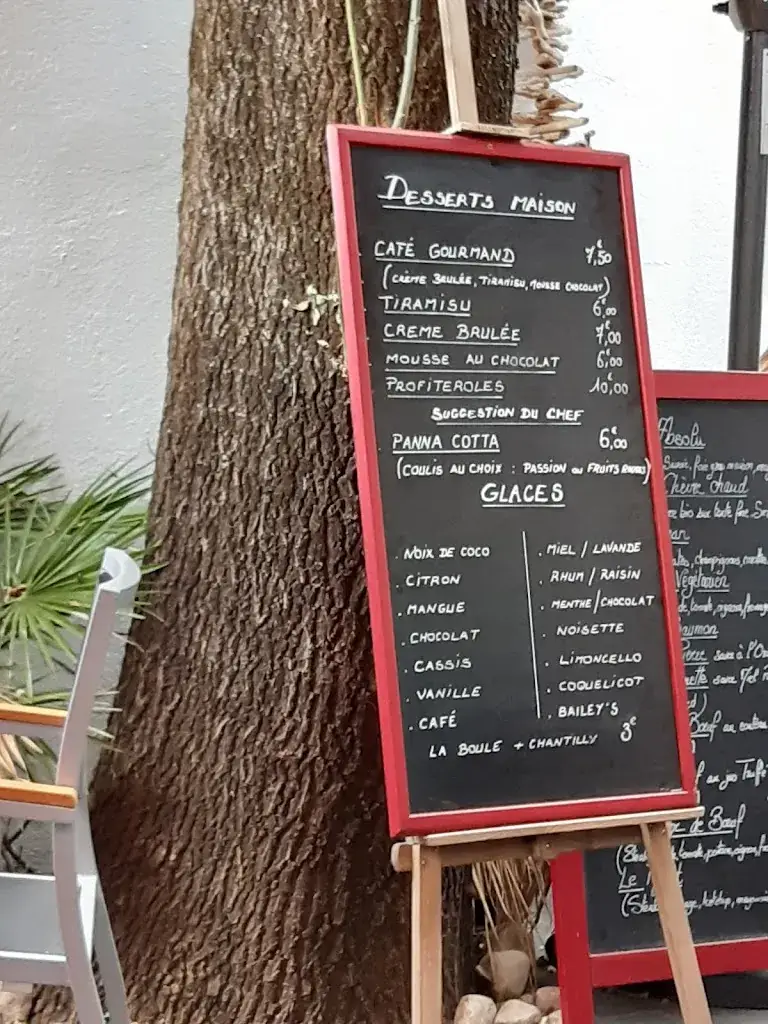 DESSERTS MAISON
CAFÉ GOURMAND 7,50€
(CRÈME BRULÉE, TIRAMISU, MOUSSE CHOCOLAT)
TIRAMISU 6,00€
CREME BRULÉE 7,00€
MOUSSE AU CHOCOLAT 6,00€
PROFITEROLES 10,00€
SUGGESTION DU CHEF
PANNA COTTA 6,00€
(COULIS AU CHOIX : PASSION ou FRUITS ROUGES)
GLACES
. NOIX DE COCO
. CITRON
. MANGUE
. CHOCOLAT
. CASSIS
. VANILLE
. CAFÉ
. MIEL / LAVANDE
. RHUM / RAISIN
. MENTHE/CHOCOLAT
. NOISETTE
. LIMONCELLO
. COQUELICOT
. BAILEY'S
LA BOULE + CHANTILLY 3€
Absolu
foie gras maison,
Chèvre chaud
champignons,
Végétarien
sauce à l'
Bœuf au
au jus Truffe
de Bœuf
Le
ketchup,